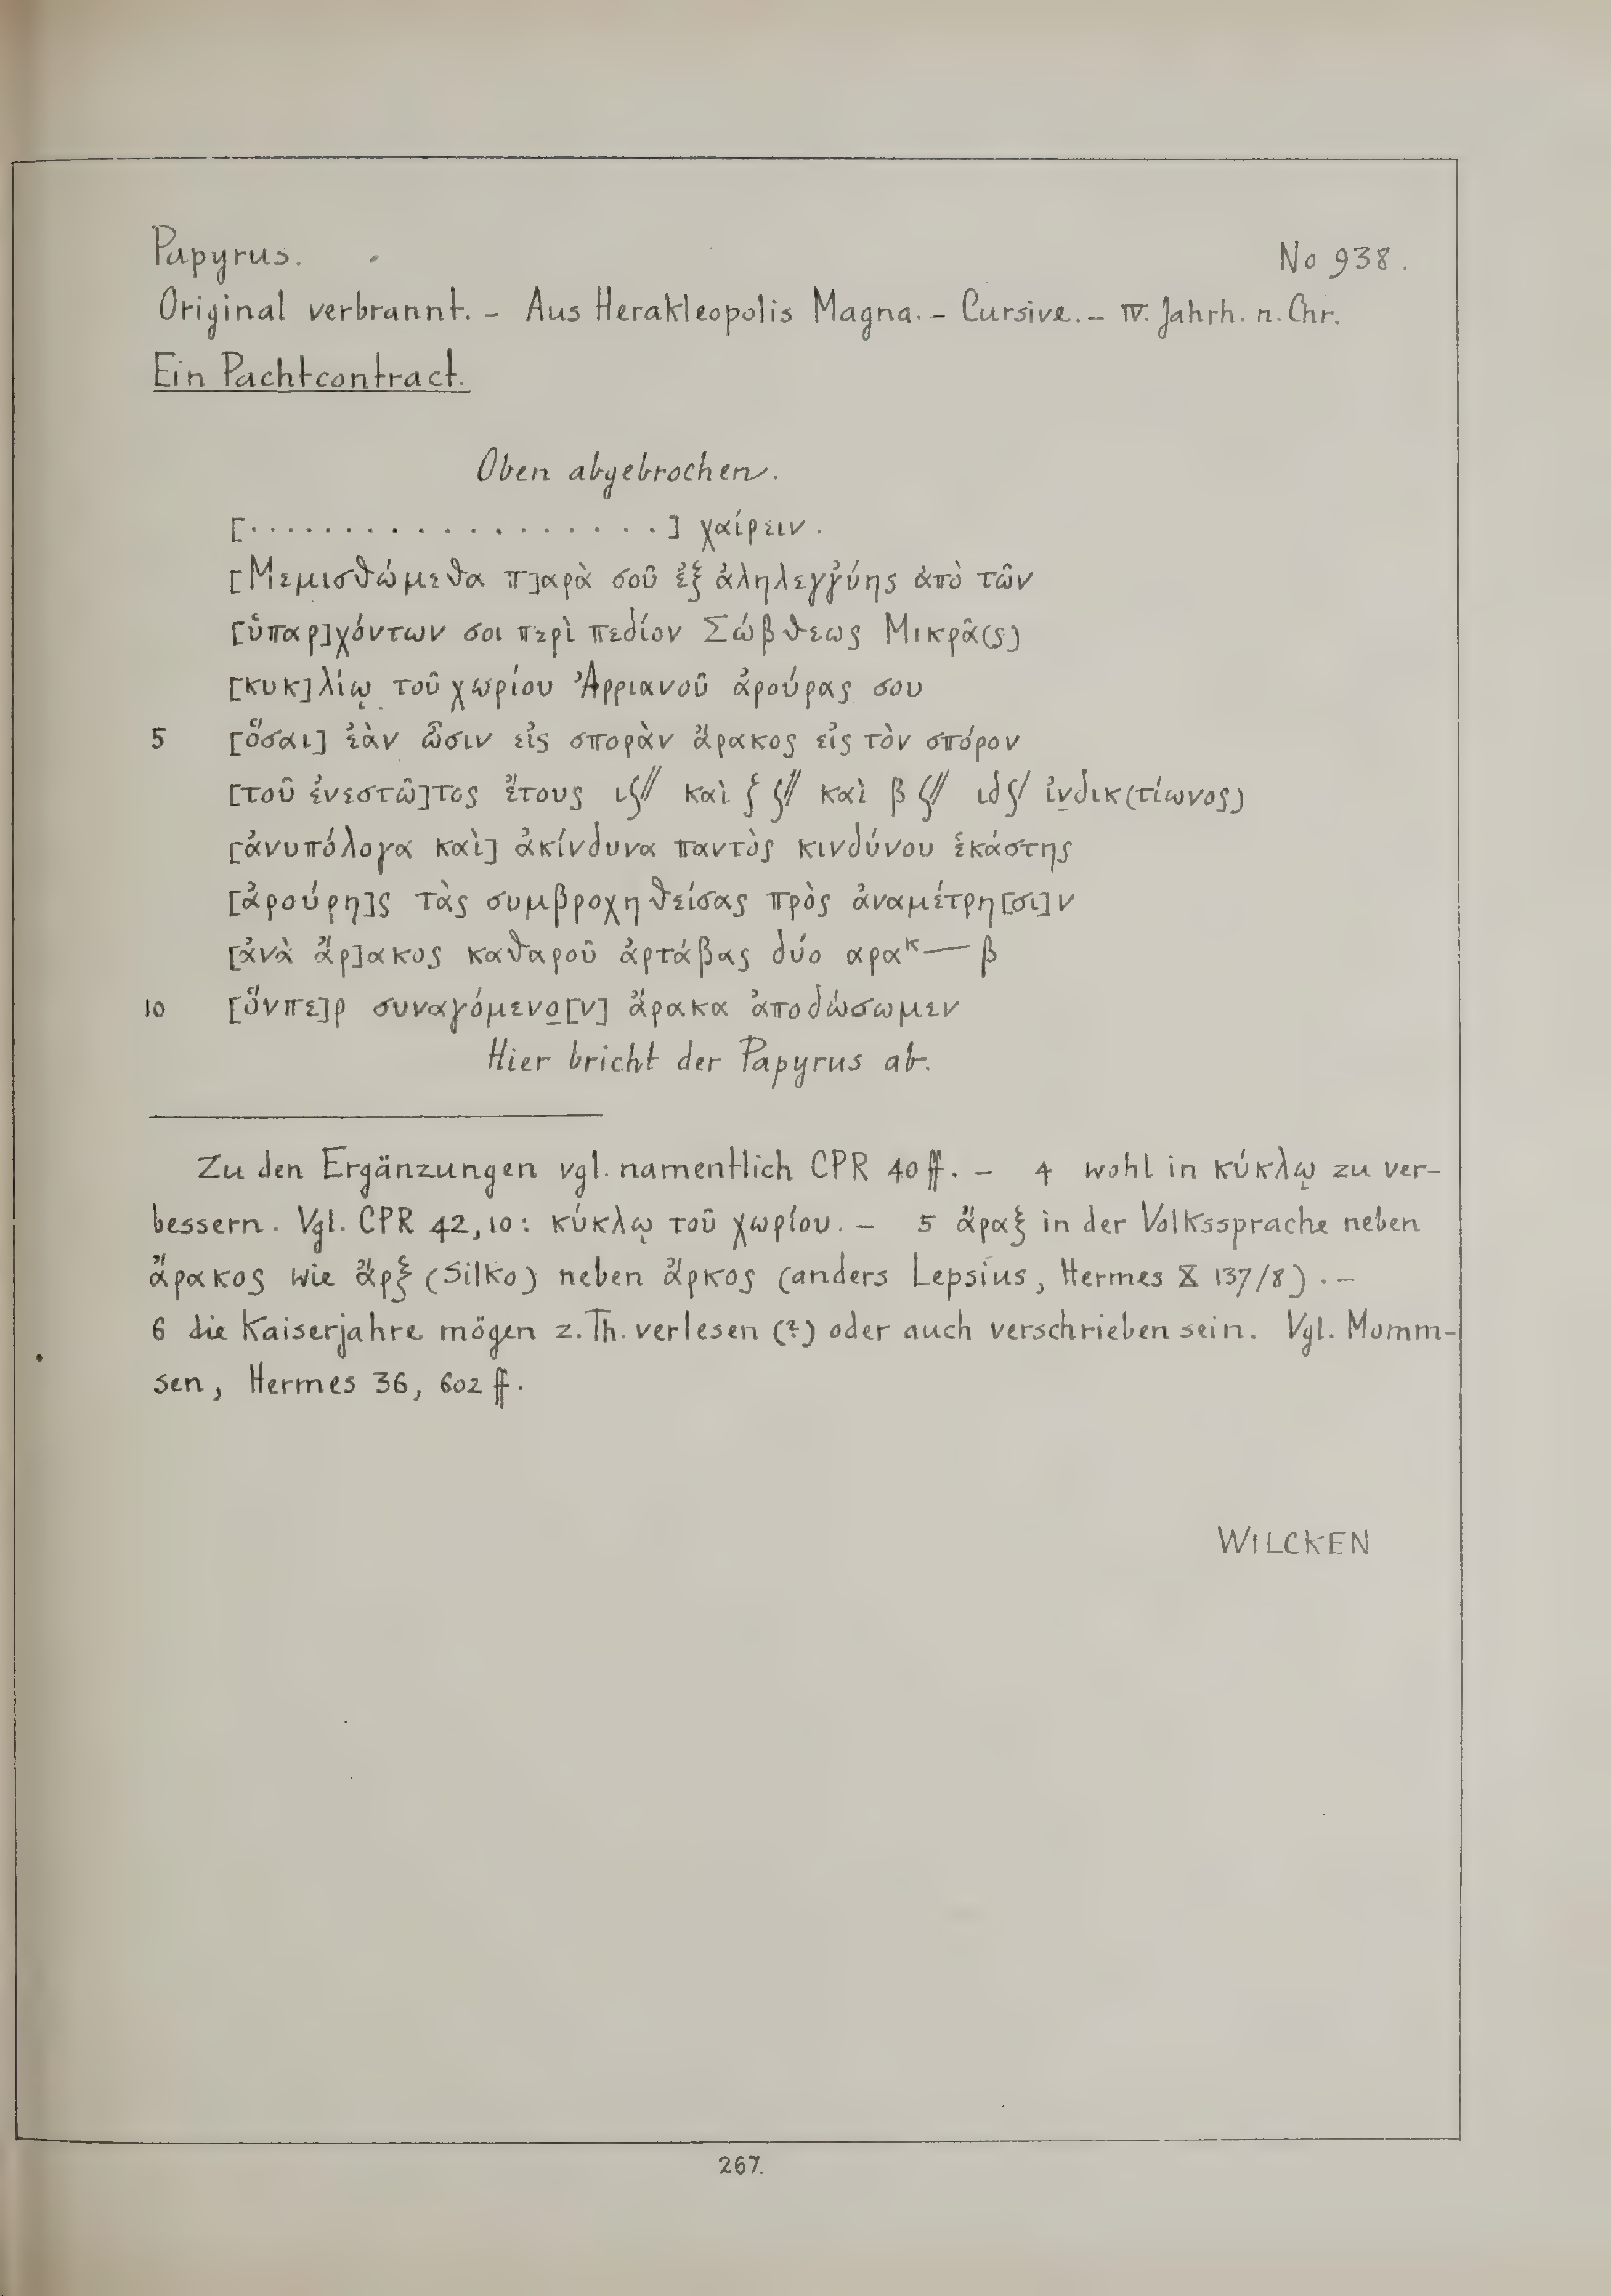 Papyrus. No 938.
Original verbrannt. – Aus Herakleopolis Magna. – Cursive. – IV. Jahrh. n. Chr.
Ein Pachtcontract.
Oben abgebrochen.
[. . . . . . . . . . . . . . . . . .] χαίρειν.
[Μεμισθώμεθα π]αρὰ σοῦ ἐξ ἀληλεγγύης ἀπὸ τῶν
[ὑπαρ]χόντων σοι περὶ πεδίον Σώβθεως Μικρᾶ(ς)
[κυκ]λίῳ τοῦ χωρίου Ἀρριανοῦ ἀρούρας σου
5 [ὅσαι] ἐὰν ὦσιν εἰς σπορὰν ἄρακος εἰς τὸν σπόρον
[τοῦ ἐνεστῶ]τος ἔτους ιϛ// καὶ ξ ϛ// καὶ β ϛ// ιδϛ/ ἰν̲δικ(τίωνος)
[ἀνυπόλογα καὶ] ἀκίνδυνα παντὸς κινδύνου ἑκάστης
[ἀρούρη]ς τὰς συμβροχηθείσας πρὸς ἀναμέτρη[σι]ν
[ἀνὰ ἄρ]ακος καθαροῦ ἀρτάβας δύο αρακ— β
10 [ὅνπε]ρ συναγόμενο̲[ν] ἄρακα ἀποδώσωμεν
Hier bricht der Papyrus ab.
Zu den Ergänzungen vgl. namentlich CPR 40 ff. – 4 wohl in κύκλῳ zu ver-
bessern. Vgl. CPR 42, 10: κύκλῳ τοῦ χωρίου. – 5 ἄραξ in der Volkssprache neben
ἄρακος wie ἄρξ (Silko) neben ἄρκος (anders Lepsius, Hermes X 137/8). –
6 die Kaiserjahre mögen z. Th. verlesen (?) oder auch verschrieben sein. Vgl. Momm-
sen, Hermes 36, 602 ff.
WILCKEN
267.